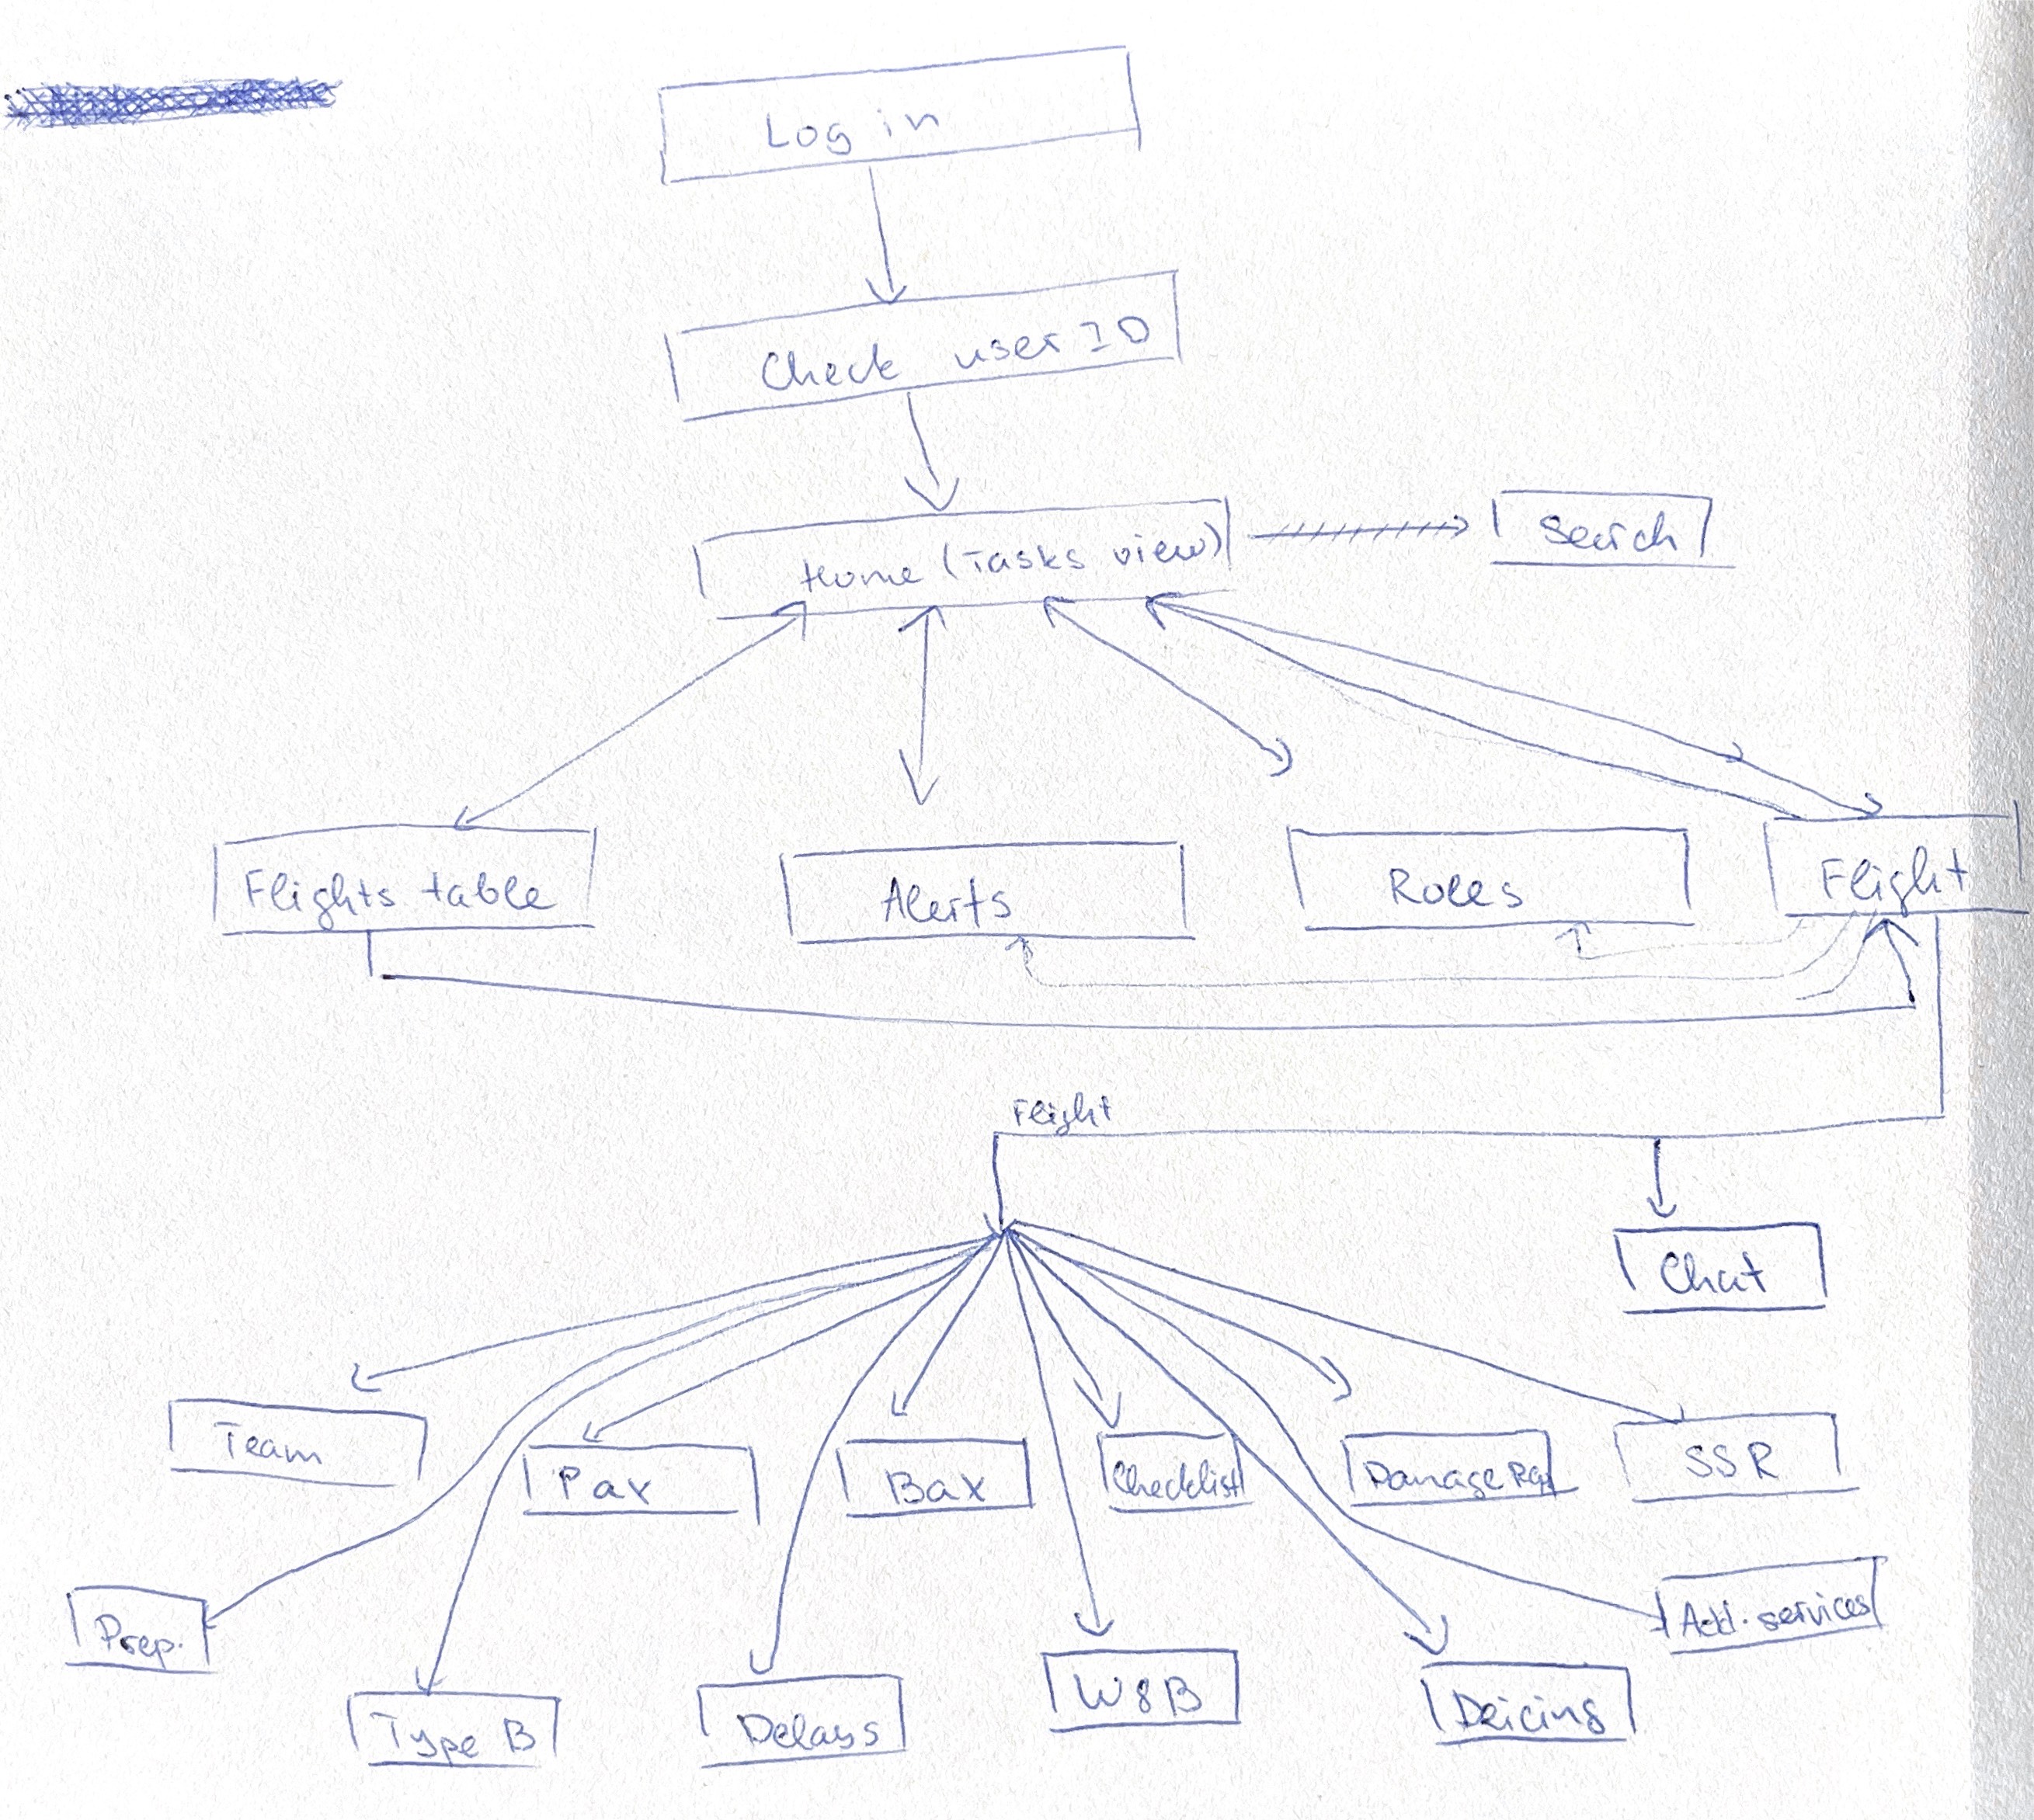 Log in
Check user ID
Home (Tasks view)
Search
Flights table
Alerts
Roles
Flight
Flight
Chat
Team
Pax
Bax
Checklist
Damage Rep
SSR
Prep.
Type B
Delays
W&B
Deicing
Add. services